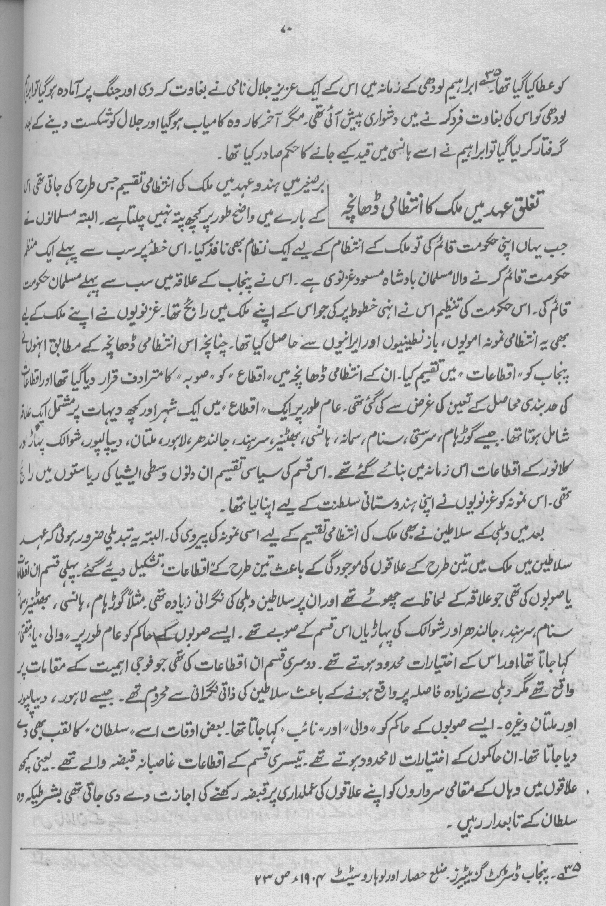 ۷۰
کو عطا کیا گیا تھا۔۳۵ ابراہیم لودھی کے زمانہ میں اس کے ایک عزیز جلال نامی نے بغاوت کر دی اور جنگ پر آمادہ ہو گیا تو ابراہیم
لودھی کو اس کی بغاوت فرو کرنے میں دشواری پیش آئی تھی۔ مگر آخر کار وہ کامیاب ہو گیا اور جلال کو شکست دینے کے بعد
گرفتار کر لیا گیا تو ابراہیم نے اسے ہانسی میں قید کیے جانے کا حکم صادر کیا تھا۔
تغلق عہد میں ملک کا انتظامی ڈھانچہ
برصغیر میں ہندو عہد میں ملک کی انتظامی تقسیم جس طرح کی جاتی تھی اس
کے بارے میں واضح طور پر کچھ پتہ نہیں چلتا ہے۔ البتہ مسلمانوں نے
جب یہاں اپنی حکومت قائم کی تو ملک کے انتظام کے لیے ایک نظام بھی نافذ کیا۔ اس خطہ پر سب سے پہلے ایک منظم
حکومت قائم کرنے والا مسلمان بادشاہ مسعود غزنوی ہے۔ اس نے پنجاب کے علاقہ میں سب سے پہلے مسلمان حکومت
قائم کی۔ اس حکومت کی تنظیم اس نے انہی خطوط پر کی جو اس کے اپنے ملک میں رائج تھا۔ غزنویوں نے اپنے ملک کے لیے
بھی یہ انتظامی نمونہ امویوں، بازنطینیوں اور ایرانیوں سے حاصل کیا تھا۔ چنانچہ اس انتظامی ڈھانچہ کے مطابق انہوں نے
پنجاب کو "اقطاعات" میں تقسیم کیا۔ ان کے انتظامی ڈھانچہ میں "اقطاع" کو "صوبہ" کا مترادف قرار دیا گیا تھا اور اقطاعات
کی حد بندی محاصل کے تعین کی غرض سے کی گئی تھی۔ عام طور پر ایک "اقطاع" میں ایک شہر اور کچھ دیہات پر مشتمل ایک علاقہ
شامل ہوتا تھا۔ جیسے گوڑہام، سرستی، سنام، سمانہ، ہانسی، بھٹنیر، سرہند، جالندھر، لاہور، ملتان، دیپالپور، شوالک پہاڑ اور
کلانور کے اقطاعات اس زمانہ میں بنائے گئے تھے۔ اس قسم کی سیاسی تقسیم ان دنوں وسطی ایشیا کی ریاستوں میں رائج
تھی۔ اس نمونہ کو غزنویوں نے اپنی ہندوستانی سلطنت کے لیے اپنا لیا تھا۔
بعد میں دہلی کے سلاطین نے بھی ملک کی انتظامی تقسیم کے لیے اسی نمونہ کی پیروی کی۔ البتہ یہ تبدیلی ضرور ہوئی کہ عہد
سلاطین میں ملک میں تین طرح کے علاقوں کی موجودگی کے باعث تین طرح کے "اقطاعات" تشکیل دیئے گئے۔ پہلی قسم ان اقطاعات
یا صوبوں کی تھی جو علاقہ کے لحاظ سے چھوٹے تھے اور ان پر سلاطین دہلی کی نگرانی زیادہ تھی۔ مثلاً گوڑہام، ہانسی، بھٹنیر، سمانہ
سنام، سرہند، جالندھر اور شوالک کی پہاڑیاں اس قسم کے صوبے تھے۔ ایسے صوبوں کے حاکم کو عام طور پر "والی" یا "مقطی"
کہا جاتا تھا اور اس کے اختیارات محدود ہوتے تھے۔ دوسری قسم ان اقطاعات کی تھی جو فوجی اہمیت کے مقامات پر
واقع تھے مگر دہلی سے زیادہ فاصلہ پر واقع ہونے کے باعث سلاطین کی ذاتی نگرانی سے محروم تھے۔ جیسے لاہور، دیپالپور
اور ملتان وغیرہ۔ ایسے صوبوں کے حاکم کو "والی" اور "نائب" کہا جاتا تھا۔ بعض اوقات اسے "سلطان" کا لقب بھی دے
دیا جاتا تھا۔ ان حاکموں کے اختیارات لامحدود ہوتے تھے۔ تیسری قسم کے اقطاعات غاصبانہ قبضہ والے تھے۔ یعنی کچھ
علاقوں میں وہاں کے مقامی سرداروں کو اپنے علاقوں کی عملداری پر قبضہ رکھنے کی اجازت دے دی جاتی تھی بشرطیکہ وہ
سلطان کے تابعدار رہیں۔
۳۵۔ پنجاب ڈسٹرکٹ گزیٹیرز۔ ضلع حصار اور لوہارو سٹیٹ ۱۹۰۴ء ص ۲۳